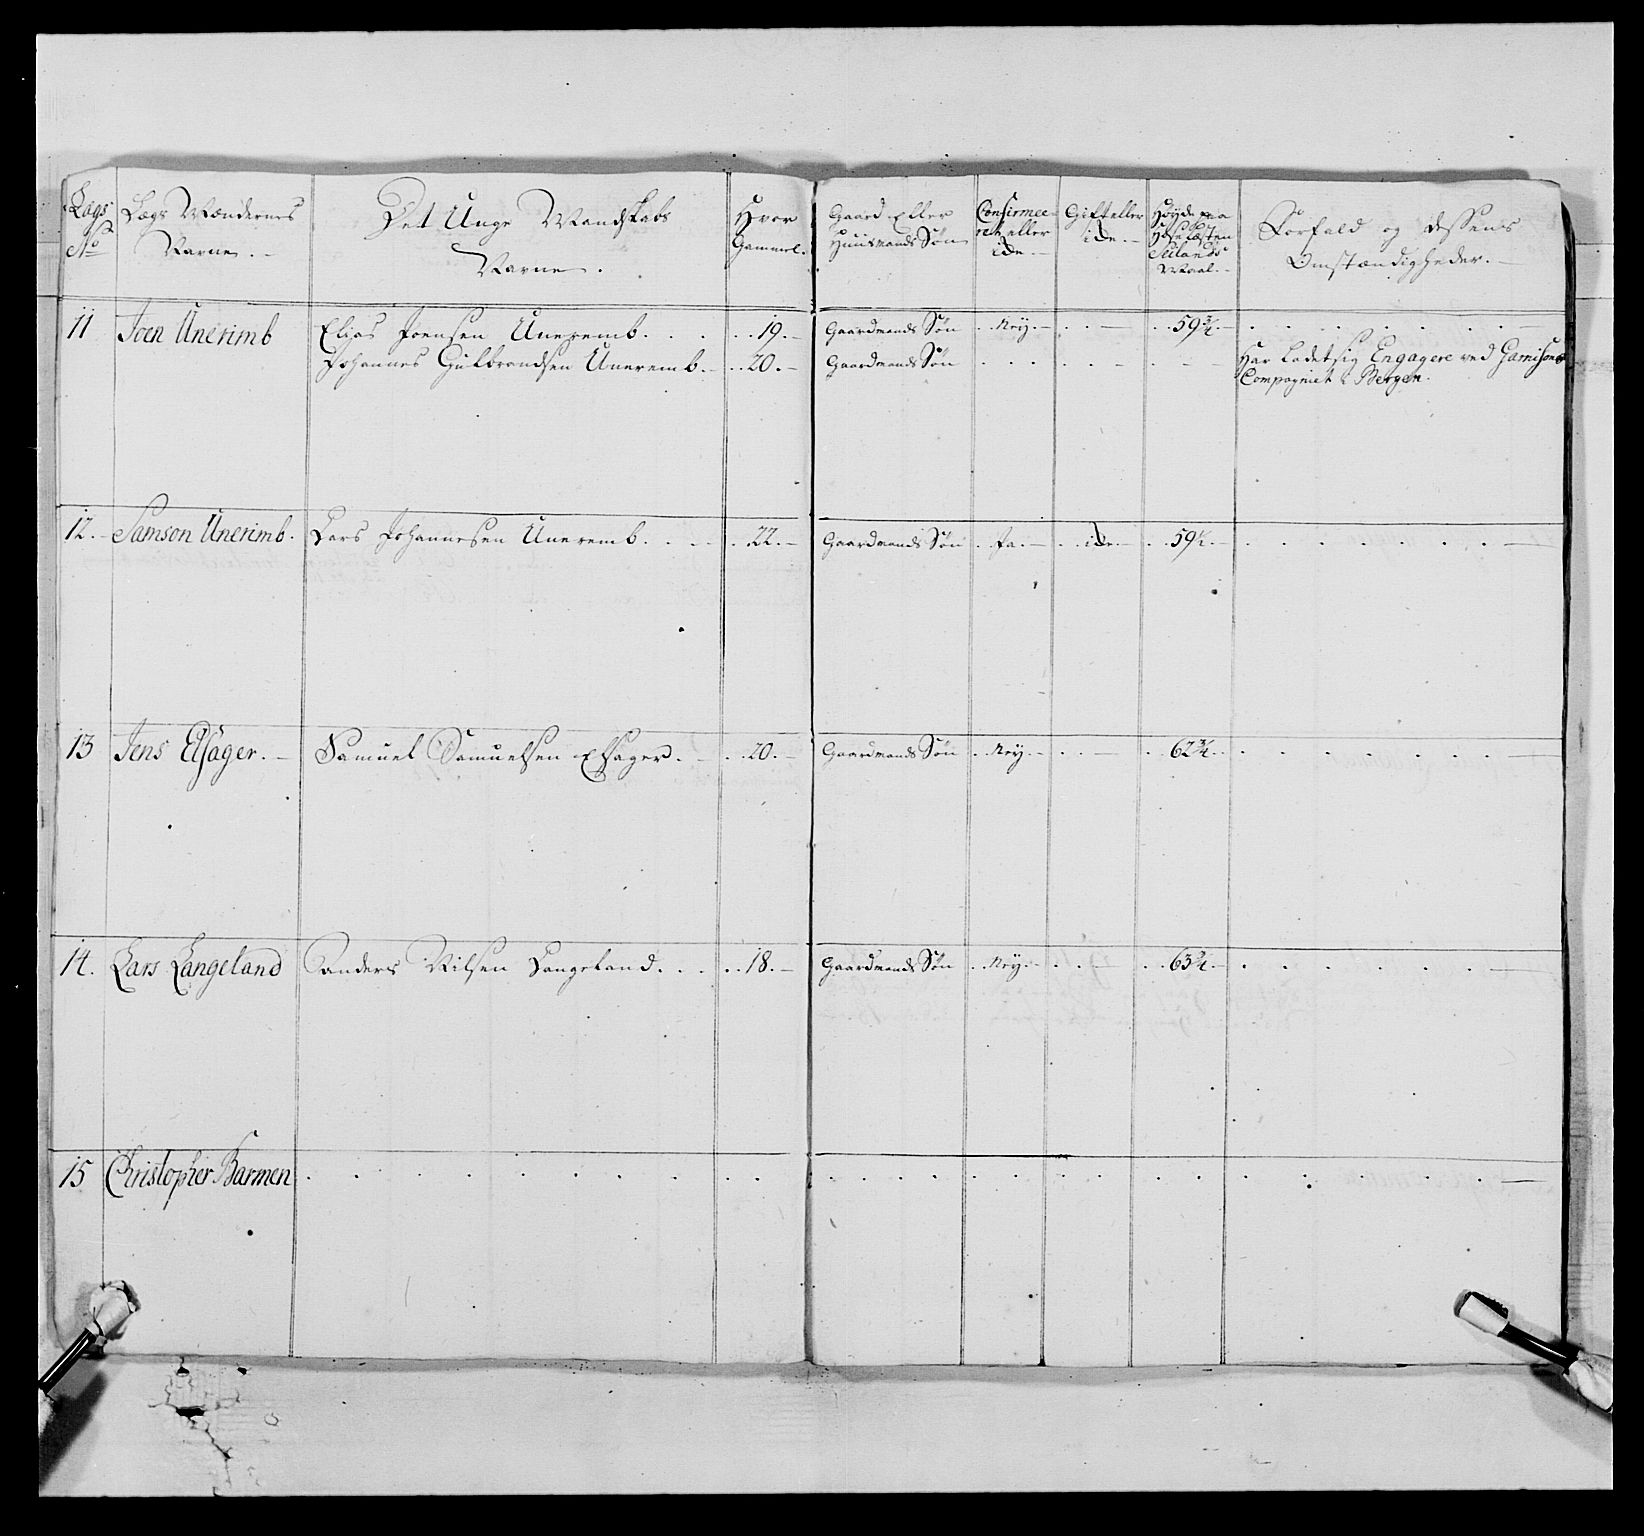 Lægs No
Lægs Mændernes Navne.
Det Unge Mandskabs Navne.
Hvor Gammel.
Gaard Eller Huusmands Søn
Confirmeeret eller ide.
Gift eller ide.
Høyde paa Selands Maal.
Forfald og dessens Omstændigheder.
11 Joen Unerimb Elias Joensen Uneremb. 19. Gaardmands Søn Ney. 59 3/4
Johannes Gulbrandsen Uneremb. 20. Gaardmands Søn Har ladet sig Engagere ved Garnisons
Compagniet i Bergen.
12. Samson Unerimb. Lars Johannesen Uneremb. 22. Gaardmands Søn Ja. ide. 59 1/2
13 Jens Elsager. Samuel Samuelsen Elsager. 20. Gaardmands Søn Ney. 62 3/4
14. Lars Langeland Anders Nilsen Langeland. 18. Gaardmands Søn Ney. 63 3/4
15 Christopher Barmen